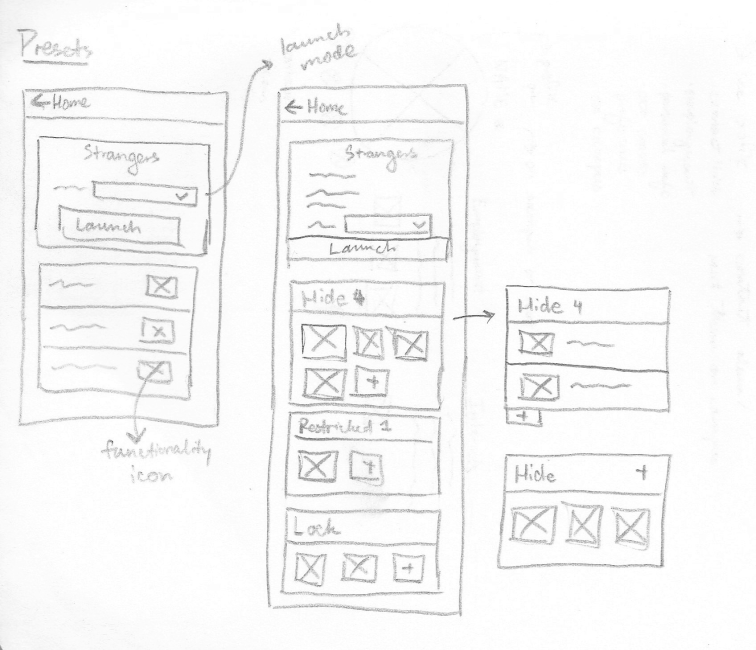 Presets
launch
mode
← Home
Strangers
Launch
functionality
icon
← Home
Strangers
Launch
Hide 4
+
Restricted 1
+
Lock
+
Hide 4
+
Hide +